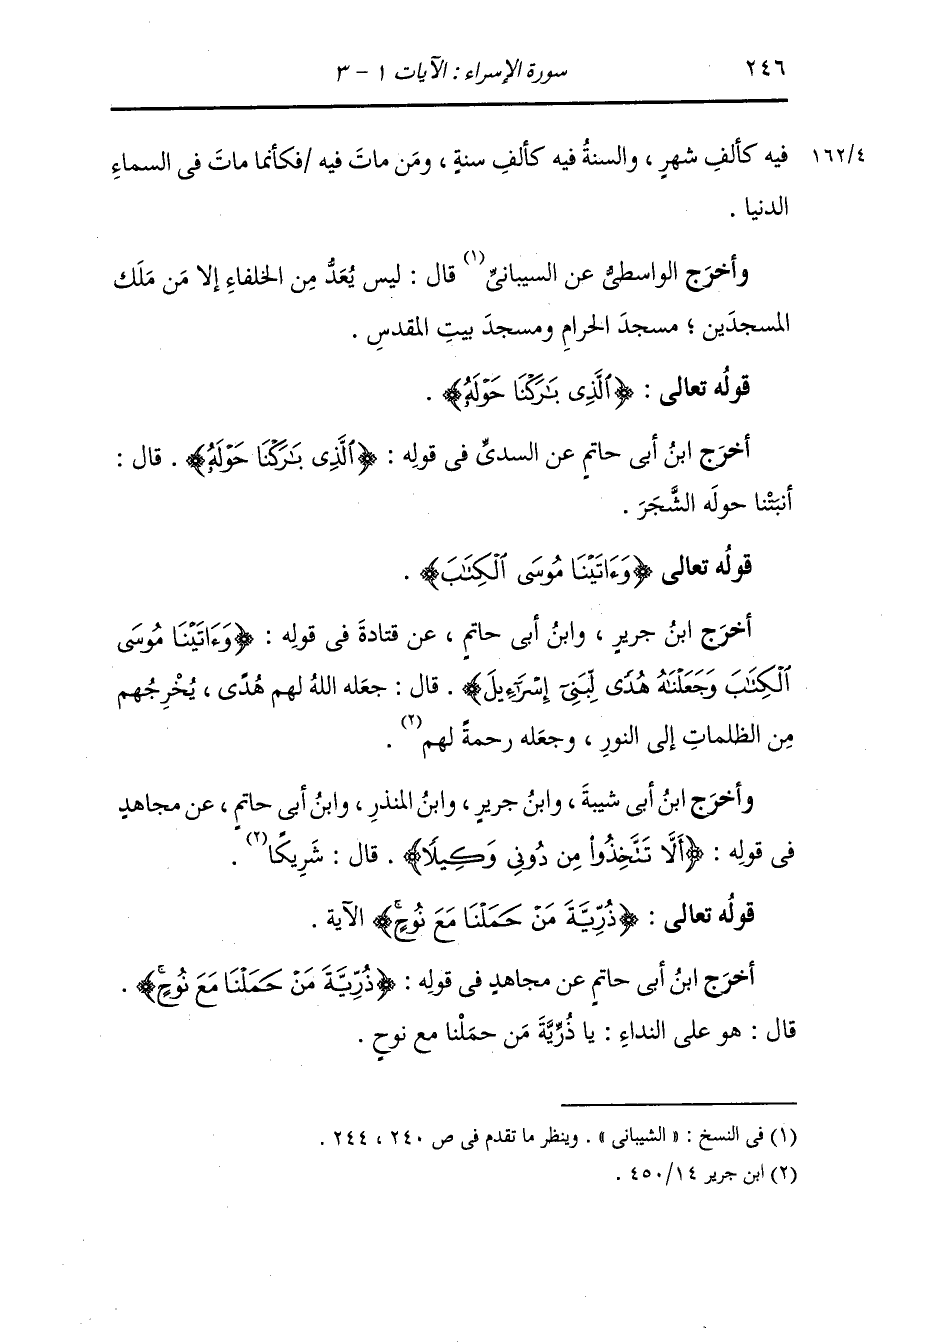 ٢٤٦ سورة الإسراء : الآيات ١ - ٣
١٦٢/٤ فيه كألفِ شهرٍ ، والسنةُ فيه كألفِ سنةٍ ، ومَن ماتَ فيه /فكأنما ماتَ فى السماءِ
الدنيا .
وأخرَج الواسطىُّ عن السيبانىِّ(١) قال : ليس يُعَدُّ مِن الخلفاءِ إلا مَن مَلَك
المسجدَين ؛ مسجدَ الحرامِ ومسجدَ بيتِ المقدسِ .
قولُه تعالى : ﴿ٱلَّذِى بَـٰرَكْنَا حَوْلَهُۥ﴾ .
أخرَج ابنُ أبى حاتمٍ عن السدىِّ فى قولِه : ﴿ٱلَّذِى بَـٰرَكْنَا حَوْلَهُۥ﴾ . قال :
أنبَتْنا حولَه الشَّجَرَ .
قولُه تعالى ﴿وَءَاتَيْنَا مُوسَى ٱلْكِتَـٰبَ﴾ .
أخرَج ابنُ جريرٍ ، وابنُ أبى حاتمٍ ، عن قتادةَ فى قولِه : ﴿وَءَاتَيْنَا مُوسَى
ٱلْكِتَـٰبَ وَجَعَلْنَـٰهُ هُدًى لِّبَنِىٓ إِسْرَٰٓءِيلَ﴾ . قال : جعَله اللهُ لهم هُدًى ، يُخْرِجُهم
مِن الظلماتِ إلى النورِ ، وجعَله رحمةً لهم(٢) .
وأخرَج ابنُ أبى شيبةَ ، وابنُ جريرٍ ، وابنُ المنذرِ ، وابنُ أبى حاتمٍ ، عن مجاهدٍ
فى قولِه : ﴿أَلَّا تَتَّخِذُوا۟ مِن دُونِى وَكِيلًا﴾ . قال : شَرِيكًا(٢) .
قولُه تعالى : ﴿ذُرِّيَّةَ مَنْ حَمَلْنَا مَعَ نُوحٍ ۚ﴾ الآية .
أخرَج ابنُ أبى حاتمٍ عن مجاهدٍ فى قولِه : ﴿ذُرِّيَّةَ مَنْ حَمَلْنَا مَعَ نُوحٍ ۚ﴾ .
قال : هو على النداءِ : يا ذُرِّيَّةَ مَن حمَلْنا مع نوحٍ .
(١) فى النسخ : « الشيبانى » . وينظر ما تقدم فى ص ٢٤٠ ، ٢٤٤ .
(٢) ابن جرير ٤٥٠/١٤ .